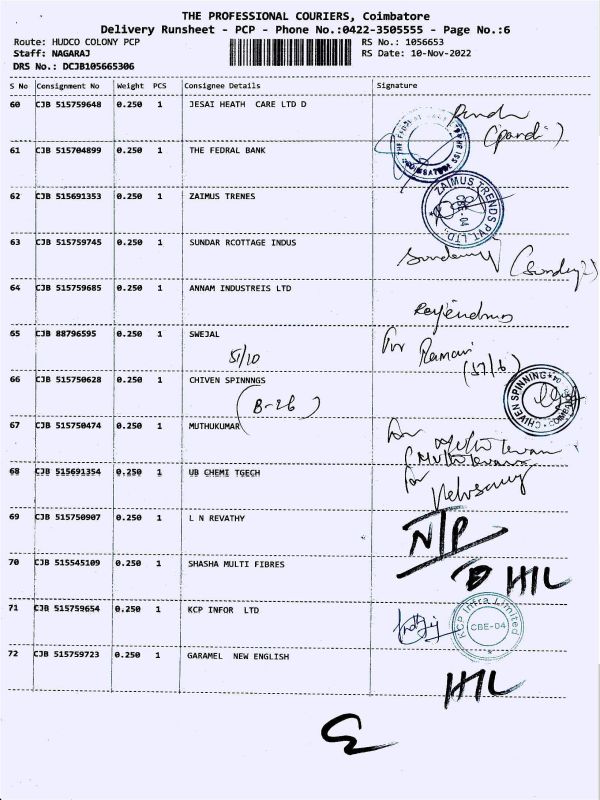 THE PROFESSIONAL COURIERS, Coimbatore
Delivery Runsheet - PCP - Phone No.:0422-3505555 - Page No.:6
Route: HUDCO COLONY PCP RS No.: 1056653
Staff: NAGARAJ RS Date: 10-Nov-2022
DRS No.: DCJB105665306
S No Consignment No Weight PCS Consignee Details Signature
60 CJB 515759648 0.250 1 JESAI HEATH CARE LTD D
(pandi)
61 CJB 515704899 0.250 1 THE FEDRAL BANK
62 CJB 515691353 0.250 1 ZAIMUS TRENES
ZAIMUS TRENDS PVT. LTD.,
CBE-04
63 CJB 515759745 0.250 1 SUNDAR RCOTTAGE INDUS
64 CJB 515759685 0.250 1 ANNAM INDUSTREIS LTD
65 CJB 88796595 0.250 1 SWEJAL
51/10
For Ramani
(57/6)
66 CJB 515750628 0.250 1 CHIVEN SPINNNGS
(B-26)
CHIVEN SPINNING
67 CJB 515750474 0.250 1 MUTHUKUMAR
68 CJB 515691354 0.250 1 UB CHEMI TGECH
for
69 CJB 515750907 0.250 1 L N REVATHY
N/P
70 CJB 515545109 0.250 1 SHASHA MULTI FIBRES
D H/L
71 CJB 515759654 0.250 1 KCP INFOR LTD
KCP Infra Limited
CBE-04
72 CJB 515759723 0.250 1 GARAMEL NEW ENGLISH
H/L